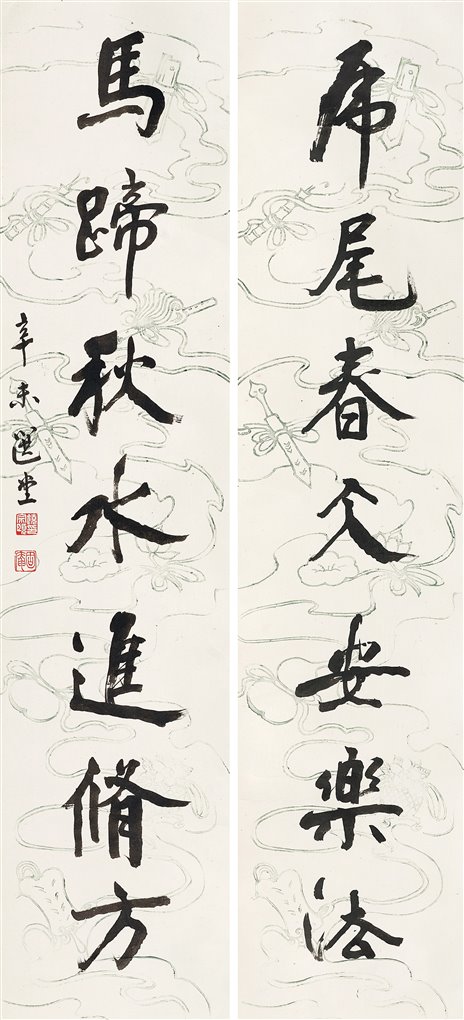 虎尾春仌安樂法
馬蹄秋水進脩方
辛未選堂